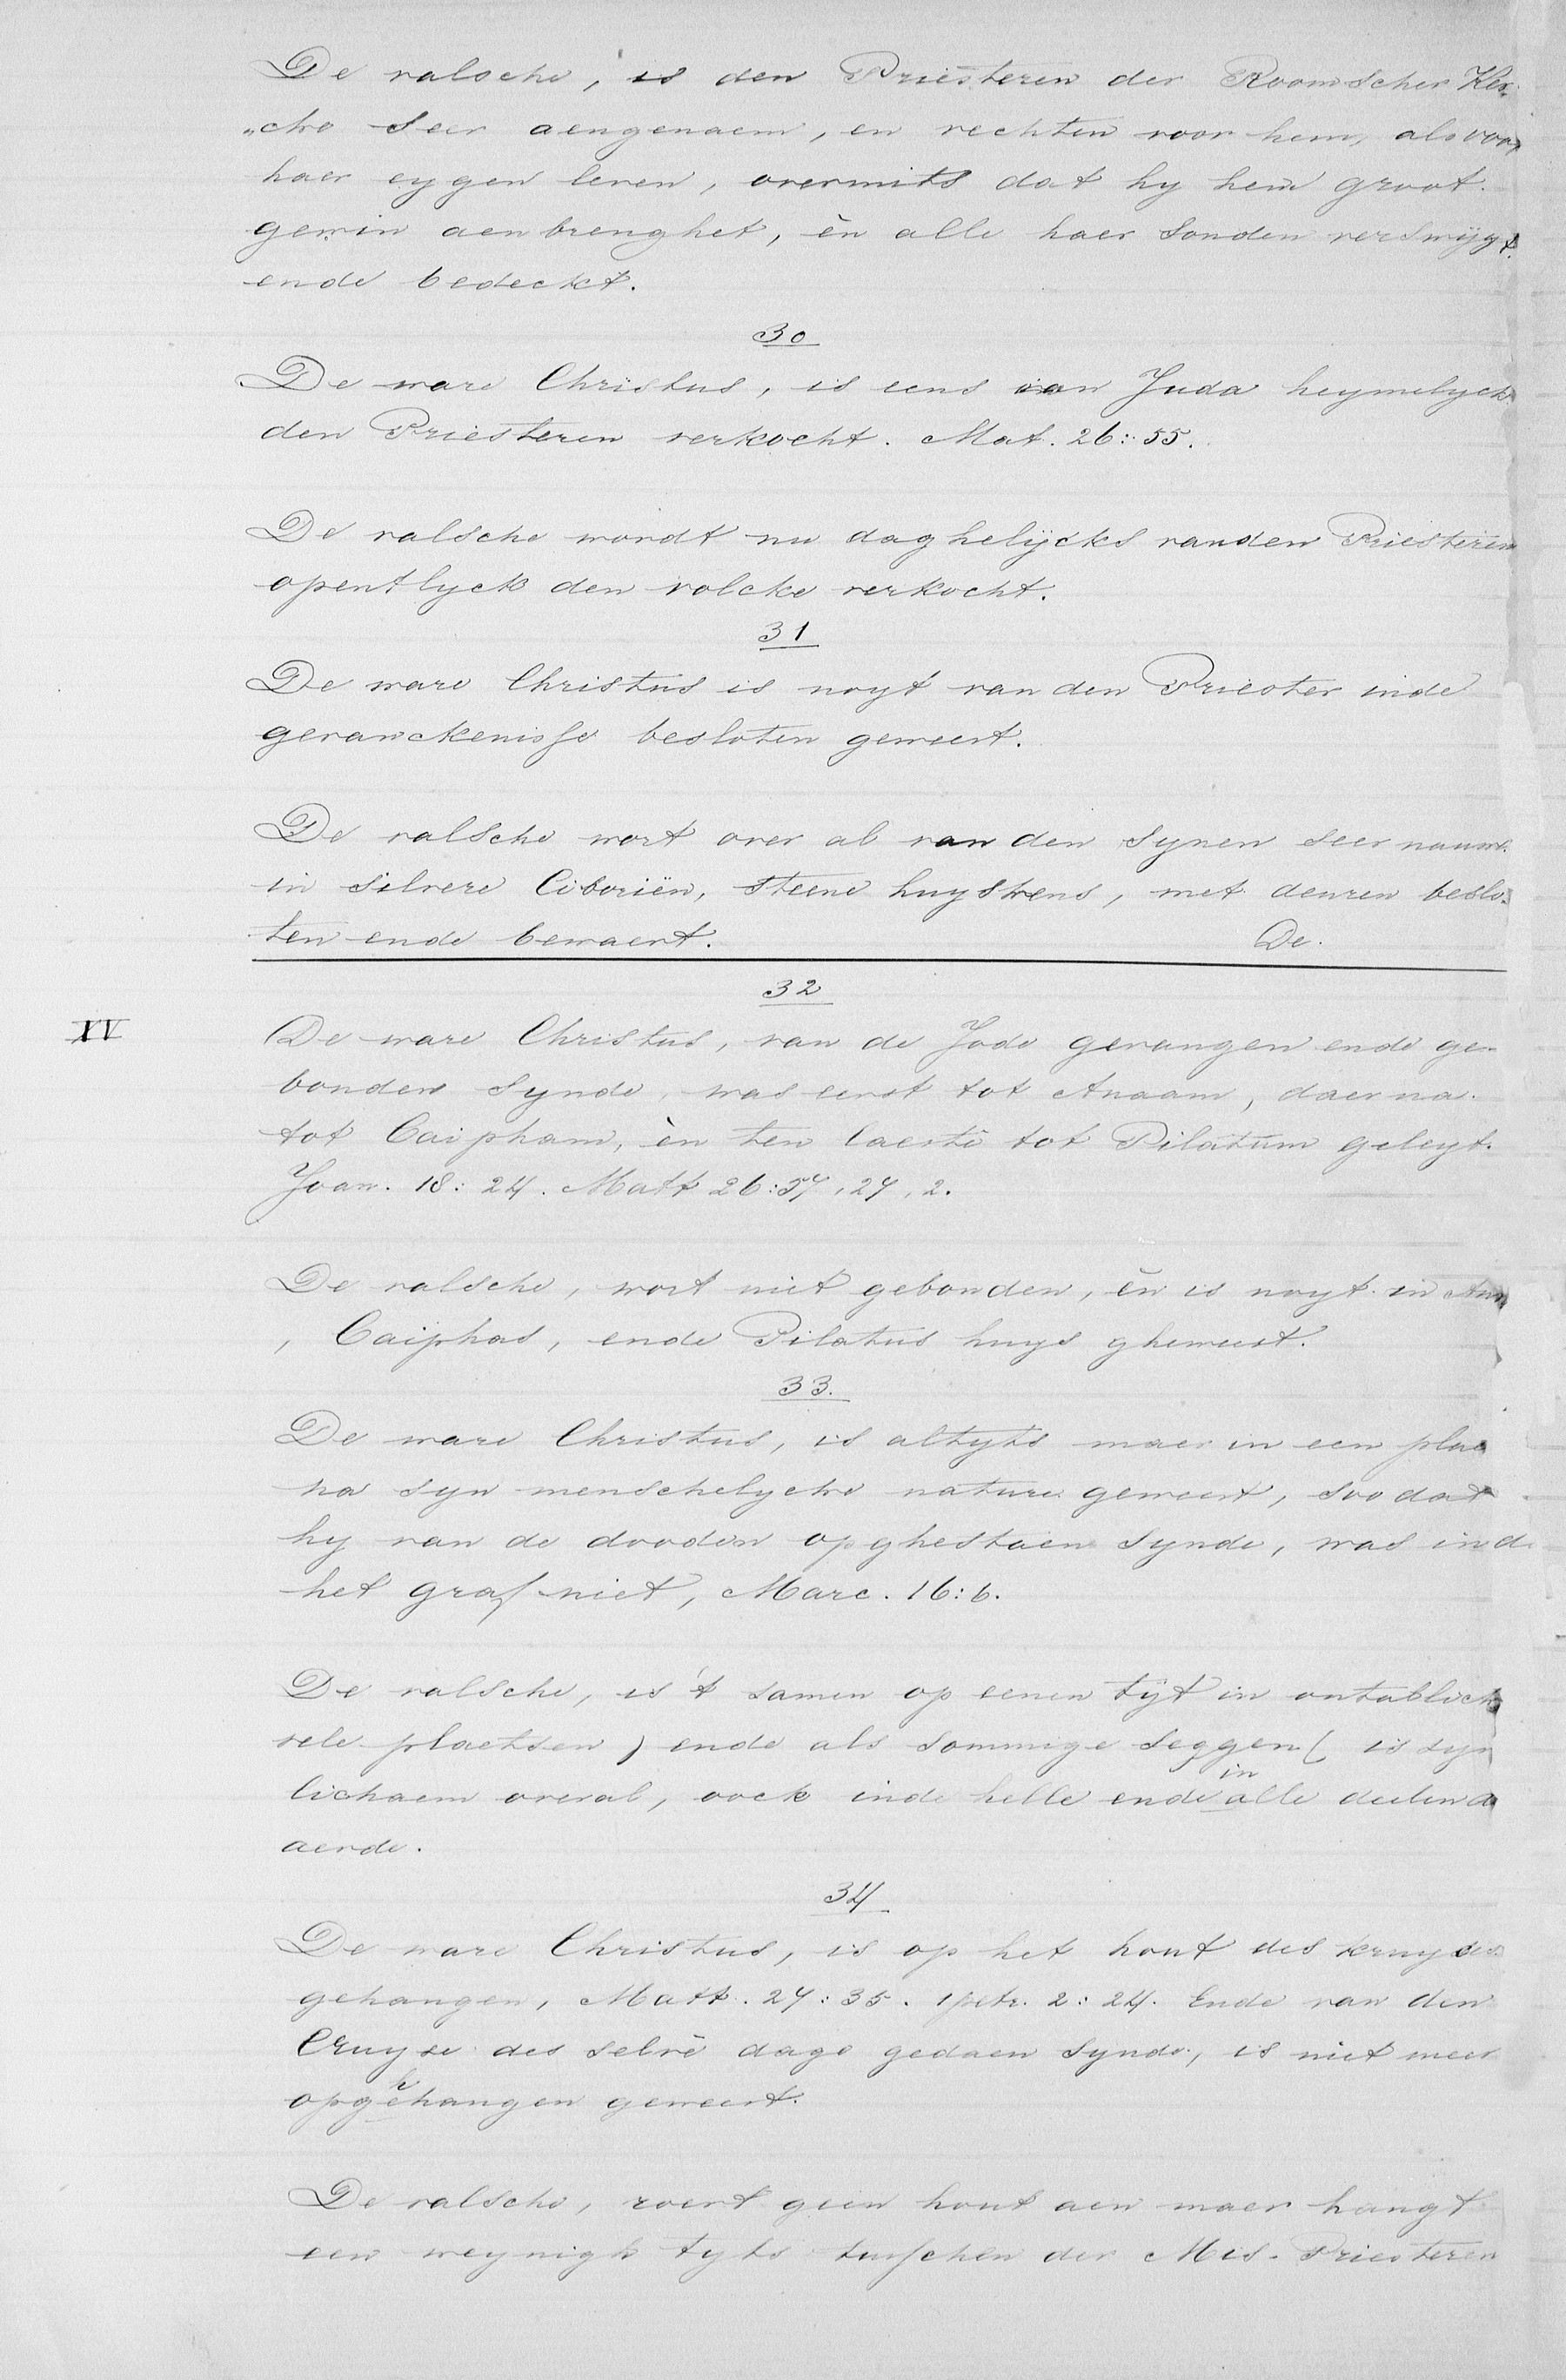 De valsche, is den Priesteren der Roomscher Ker„
„cke seer aengenaem, en vechten voor hem, als voor
haer eygen leven, overmits dat hy hem groot
gewin aenbrenghet, èn alle haer sonden verswijgt
ende bedeckt.
30
De ware Christus, is eens van Juda heymelyck
den Priesteren verkocht. Mat. 26:55.
De valsche wordt nu daghelijcks vanden Priesteren
opentlyck den volcke verkocht.
31
De ware Christus is noyt van den Priester inde
gevanckenisse besloten geweest.
De valsche wort over al van den synen seer nauwe
in silvere Ciboriën, steene huyskens, met deuren beslo„
ten ende bewaert. De.
32
XV
De ware Christus, van de Jode gevangen ende ge-
bonden synde, was eerst tot Anaam, daer na
tot Caipham, èn ten laestē tot Pilatum geleyt.
Joan. 18:24. Matt 26:57, 27, 2.
De valsche, wort niet gebonden, ēn is noyt in Ann
, Caiphas, ende Pilatus huys gheweest.
33.
De ware Christus, is altyts maer in een plae
na syn menschelycke nature geweest, soo dat
hy van de dooden opghestaen synde, was in d
het graf niet, Marc. 16:6.
De valsche, is 't samen op eenen tijt in ontablick
vele plaetsen ) ende als sommige seggen ( is syn
lichaem overal, oock inde helle ende in alle deelen d
aerde.
34
De ware Christus, is op het hout des kruyces
gehangen, Matt. 27:35. 1 petr. 2:24. Ende van den
Cruyse des selvē dage gedaen synde, is niet meer
opghehangen geweest.
De valsche, roert geen hout aen maer hangt
een weynigh tyts tusschen der Mis-Priesteren